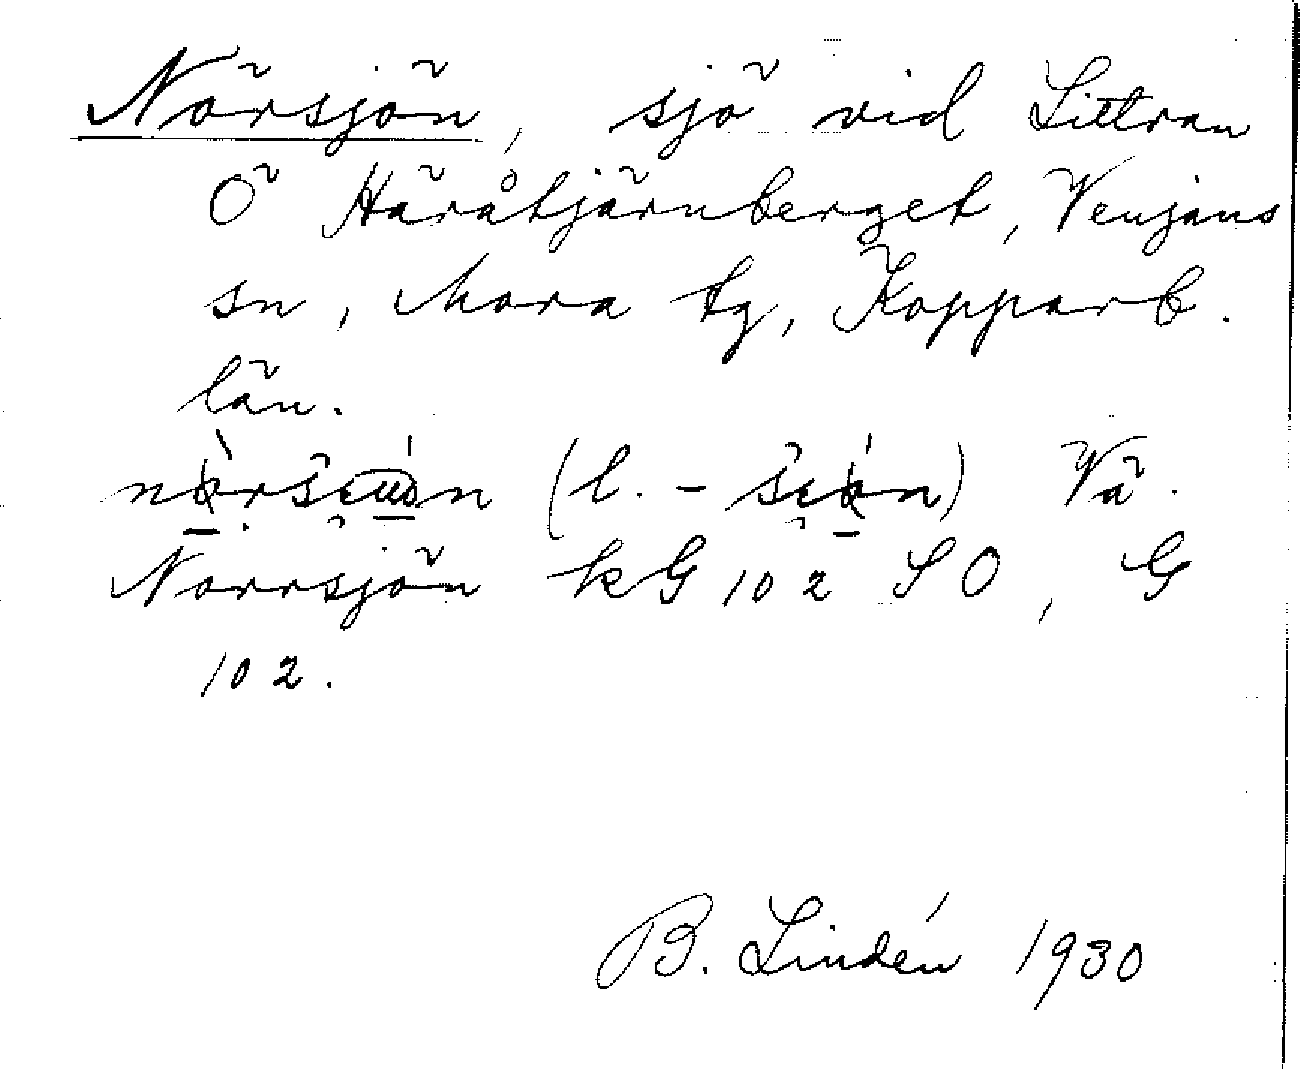 Nörsjön, sjö vid Littran
Ö Häråtjärnberget, Venjans
sn, Mora tg, Kopparb.
län.
(l. - Vä.
Norrsjön kG 102 SO, G
102.
B. Lindén 1930